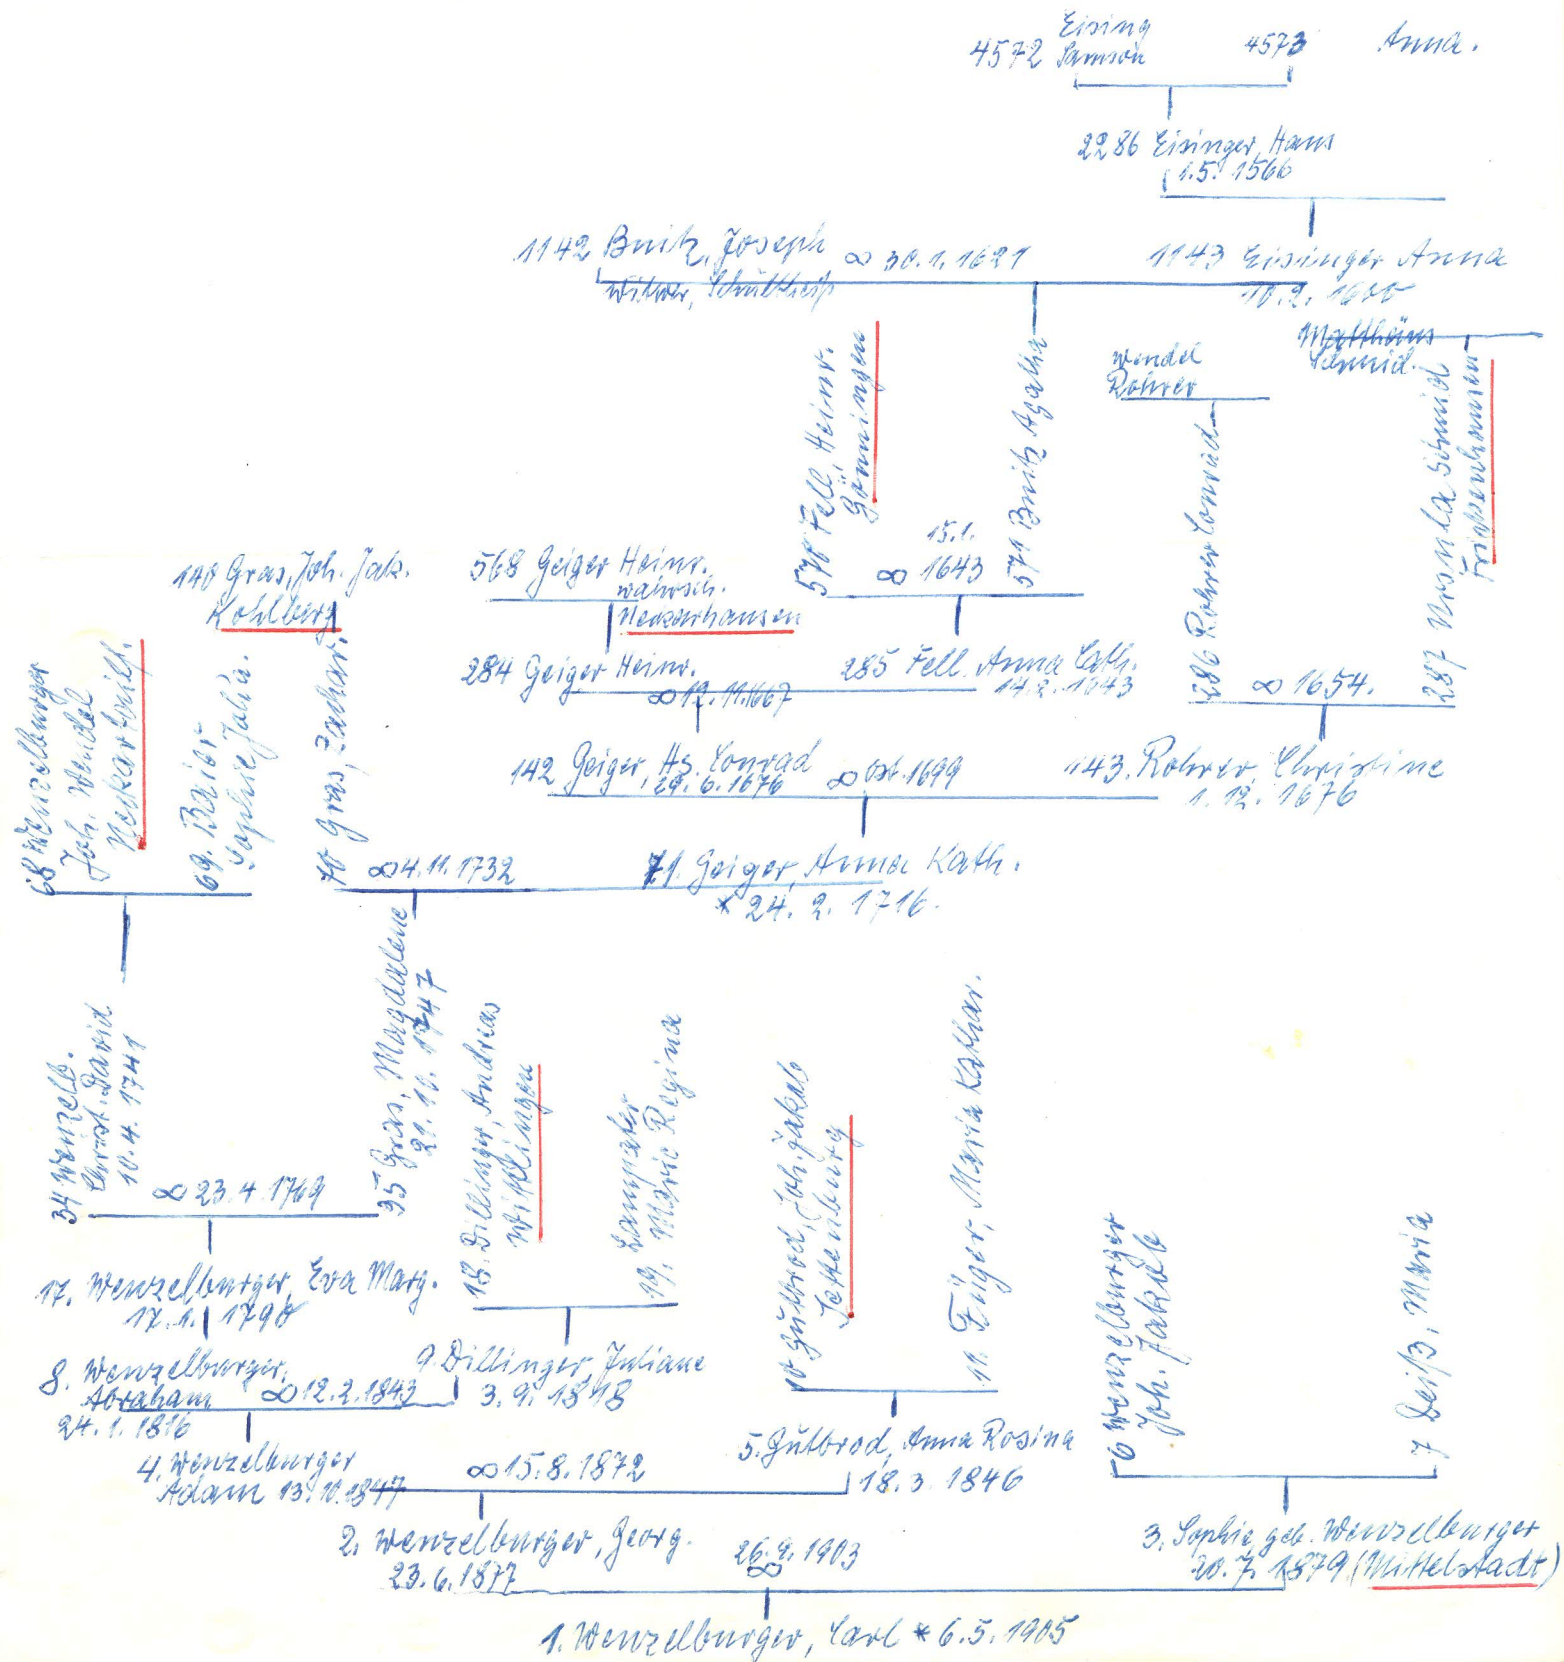 4572 Eising
Samson
4573 Anna.
2286 Eisinger, Hans
1.5. 1566
1142 Bnitz, Joseph ∞ 30.1.1621
Witwer, Schultheiß
1143 Eisinger Anna
10.2. 1600
Matthäus
Schmid.
Wendel
Rohrer
570 Fell, Heinr.
Gönningen
571 Bnitz Agatha
15.1.
∞ 1643
286 Rohrer Conrad
287 Ursula Schmid
∞ 1654.
140 Gras, Joh. Jak.
Kohlberg
568 Geiger Heinr.
wahrsch.
Neckarhausen
284 Geiger Heinr.
∞ 12.11.1667
285 Fell. Anna Cath.
14.2. 1643
142 Geiger, Hs. Conrad ∞ Ost. 1699
29.6.1676
143. Rohrer, Christine
1. 12. 1676
68 Wenzelburger
Joh. Wendel
69. Baier
Sophie Julia.
70 Gras, Zachar.
∞ 4.11.1732
71. Geiger, Anna Kath.
* 24. 2. 1716.
34 Wenzelb.
Christ. David
10.4.1741
∞ 23.4.1769
35 Gras, Magdalene
21.10.1747
18. Dillinger, Andreas
Wittlingen
19. Lampater
Marie Regina
10 Gutbrod, Joh. Jakob
Jettenburg
11. Füger, Maria Kathar.
6 Wenzelburger
Joh. Jakob
7 Deiß, Maria
17. Wenzelburger, Eva Marg.
17.1. 1790
8. Wenzelburger,
Abraham ∞ 12.2.1843
24.1.1816
9 Dillinger, Juliane
3.9.1818
4. Wenzelburger
Adam 13.10.1847
∞ 15.8.1872
5. Gutbrod, Anna Rosina
18.3.1846
2. Wenzelburger, Georg.
23.6.1877
26.9.1903
∞
3. Sophie, geb. Wenzelburger
20.7.1879 (Mittelstadt)
1. Wenzelburger, Carl * 6.5.1905